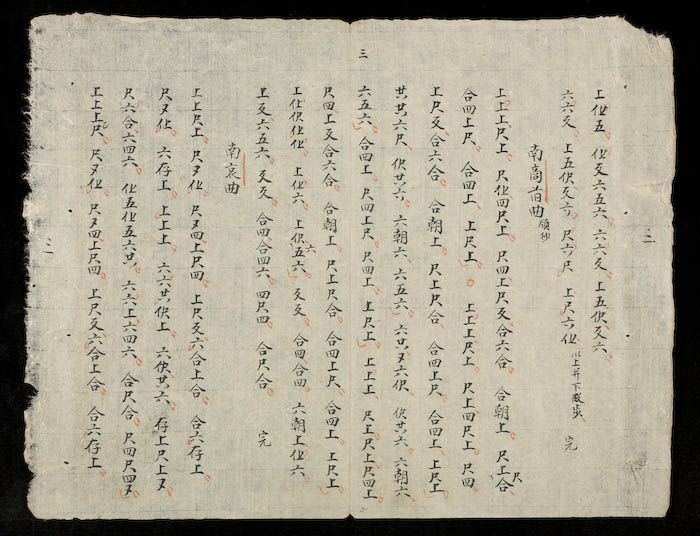 上㐵五 㐵㸚六五六 六六㸚 上五伬㸚六
六六㸚 上五伬㸚六 尺六尺 上尺六㐵 完
南商首曲
上上上尺上 尺㐵四尺上 尺四上尺㸚合六合 合朝上 尺上合
尺
合四上尺 合四上 上尺上 上上上尺上 尺上四尺上 尺四
上尺㸚合六合 合朝上 尺上尺合 合四上尺 合四上 上尺上
共共六尺 伬共六 六朝六 六五六 六共又六伬 伬共六 六朝六
三
六五六 合四上 尺四上尺 尺四上 上尺上 上上上 尺上尺上尺四上
尺四上㸚合六合 合朝上 尺上尺合 合四上尺 合四上 上尺上
上㐵伬㐵㐵 上㐵六 上伬五六 㸚㸚 合四合四 六朝上㐵六
六
上㸚六五六 㸚㸚 合四合四六 四尺四 合尺合 完
南哀曲
上上尺上 尺又㐵 尺又四上尺四 上尺㸚六合上合 合六存上
尺又㐵 六存上 上上上 六六共伬上 六伬共六 存上尺上又
尺六合六四六 㐵五㐵五六共 六六上六四六 合尺合 尺四尺四又
上上上尺 尺又㐵 尺又四上尺四 上尺㸚六合上合 合六存上